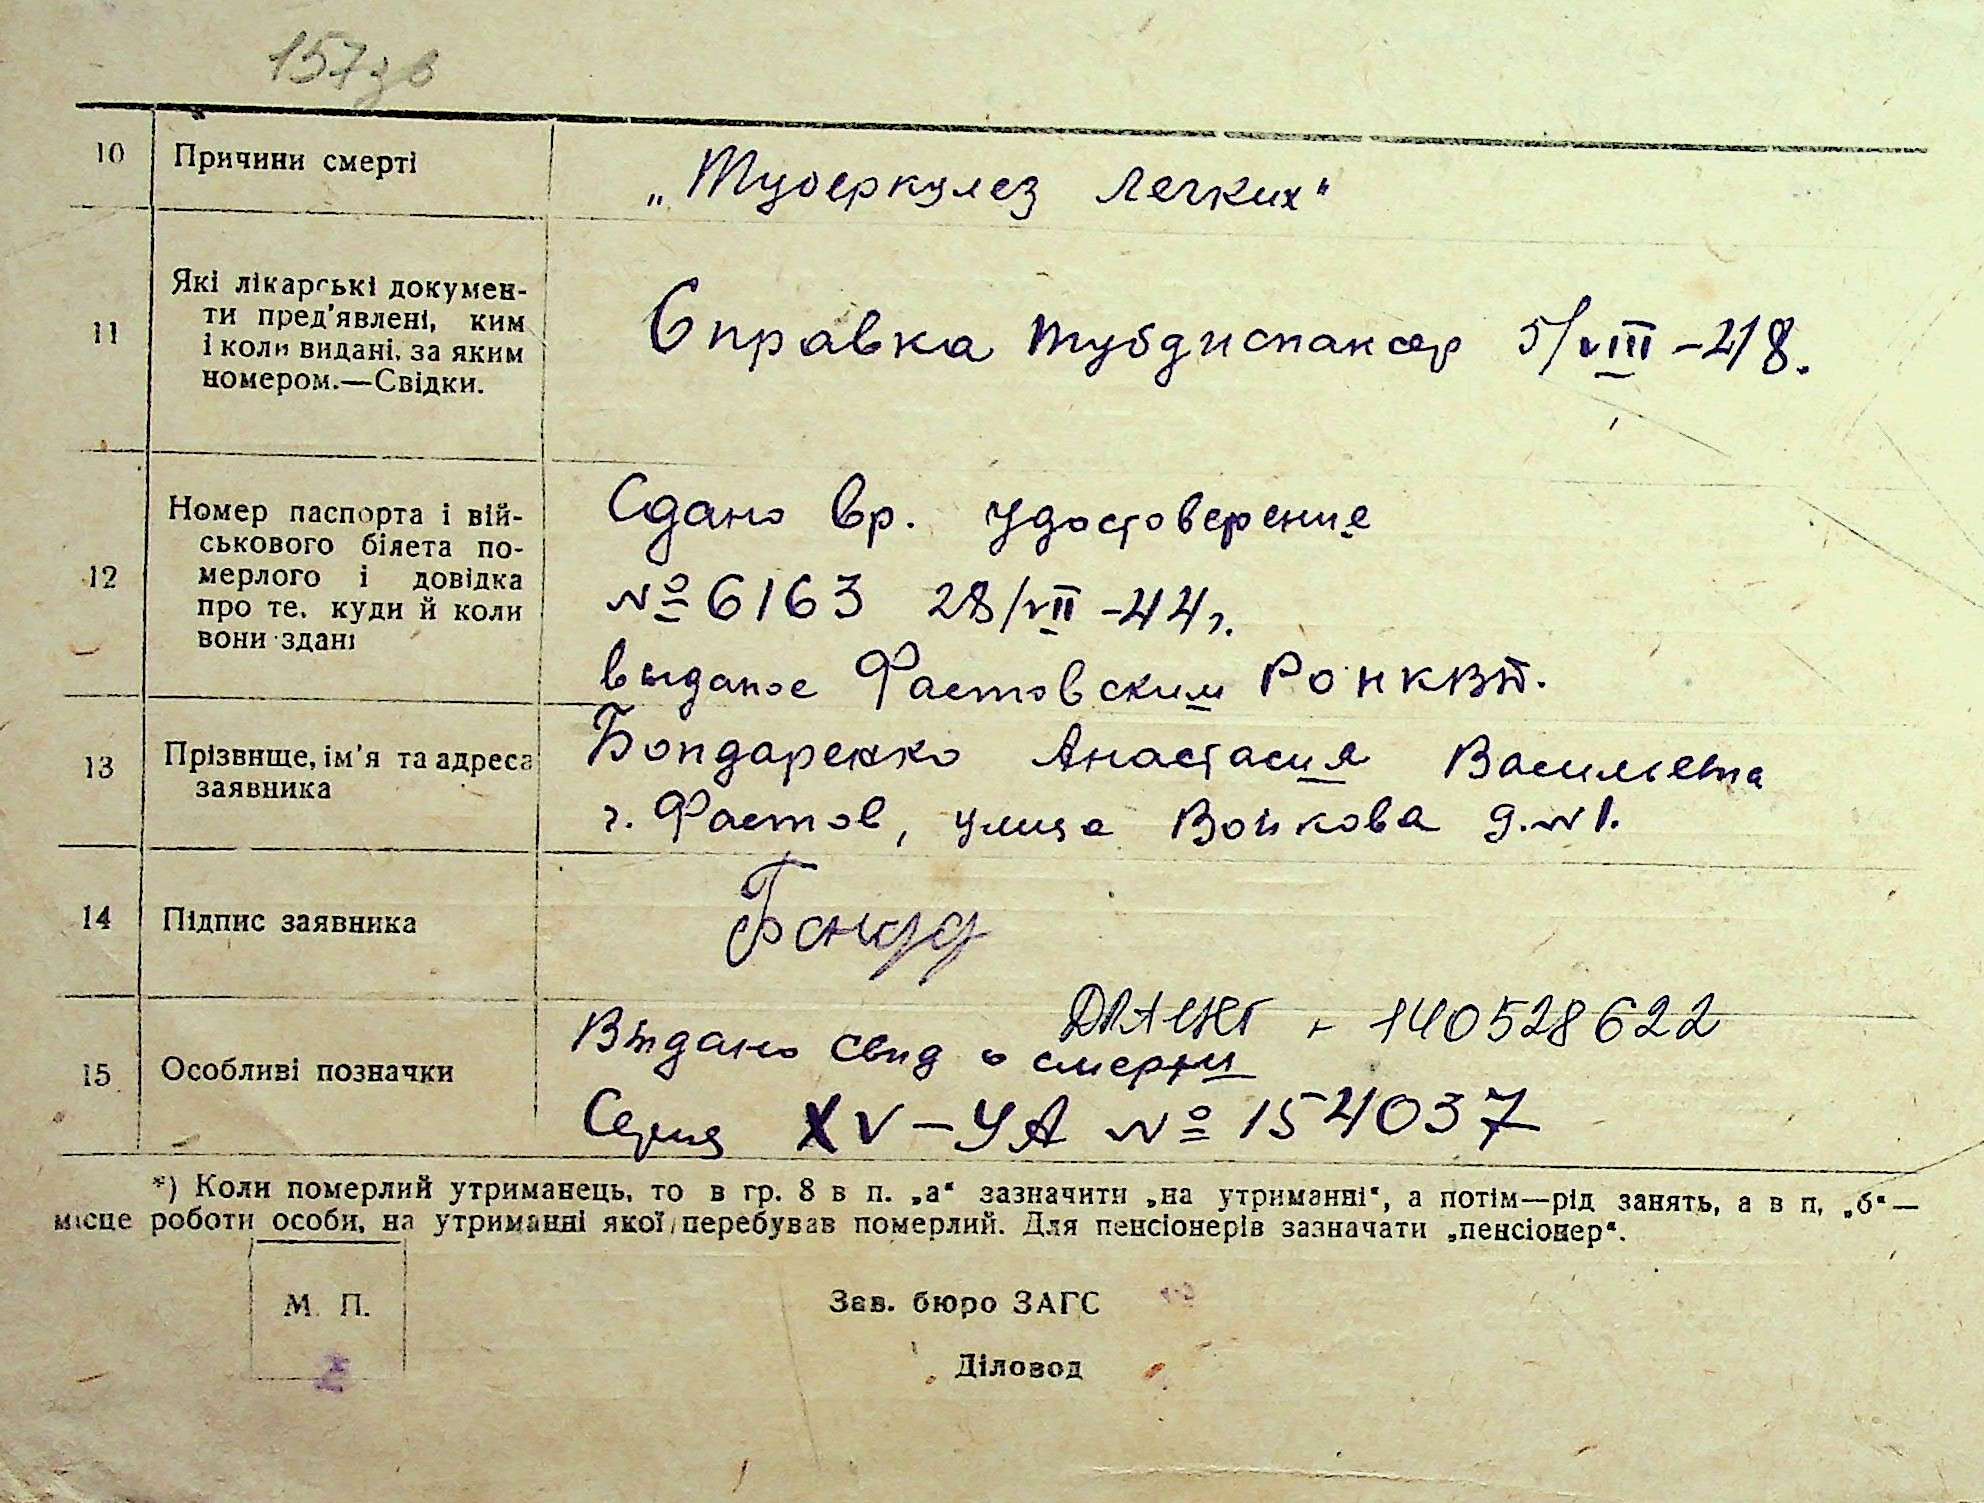 157зв
10 Причини смерті „Туберкулез легких"
11 Які лікарські докумен-
ти пред'явлені, ким
і коли видані, за яким
номером.—Свідки.
Справка тубдиспансер 5/VIII –218.
12 Номер паспорта і вій-
ськового білета по-
мерлого і довідка
про те, куди й коли
вони здані
Сдано вр. удостоверение
№ 6163 28/VII –44 г.
выданое Фастовским РОНКВД.
13 Прізвище, ім'я та адреса
заявника
Бондаренко Анастасия Васильевна
г. Фастов, улица Войкова д. № 1.
14 Підпис заявника Бонда
15 Особливі позначки
140528622
Видано свид о смерти
Серия XV–УА № 154037
*) Коли померлий утриманець, то в гр. 8 в п. „а“ зазначити „на утриманні“, а потім—рід занять, а в п. „б“—
місце роботи особи, на утриманні якої перебував померлий. Для пенсіонерів зазначати „пенсіонер“.
М. П.
Зав. бюро ЗАГС
Діловод